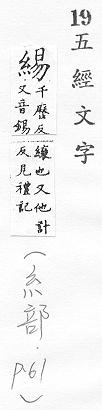 19 五經文字
緆 千歷反
・又音錫
纕也又他計
反見禮記
(糸部. p.61)